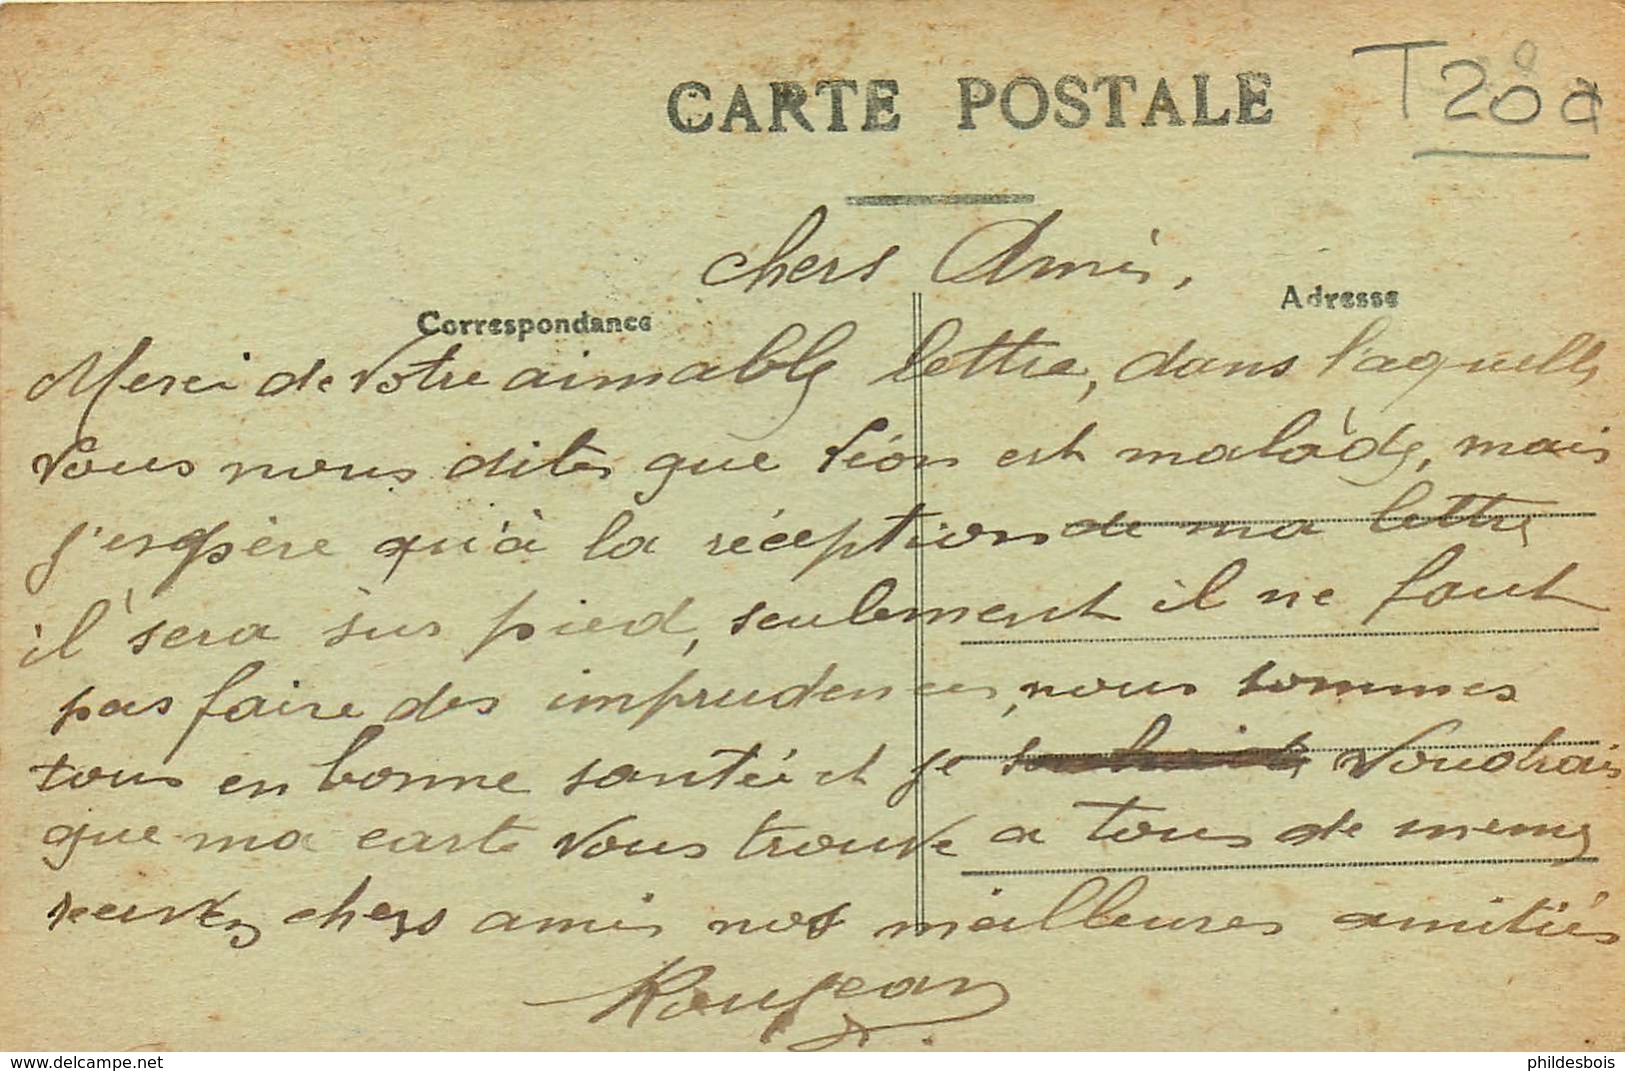 CARTE POSTALE
T 20 c
chers Amis,
Correspondance
Adresse
Merci de Votre aimable lettre, dans l'aquelle
Vous nous dites que Léon est malade, mais
j'espère qu'à la réception de ma lettre
il sera sur pied, seulement il ne faut
pas faire des imprudences, nous sommes
tous en bonne santée et je Voudrais
que ma carte Vous trouve a tous de meme
recevez chers amis nos meilleures amitiés
Roujean
delcampe.net
phildesbois